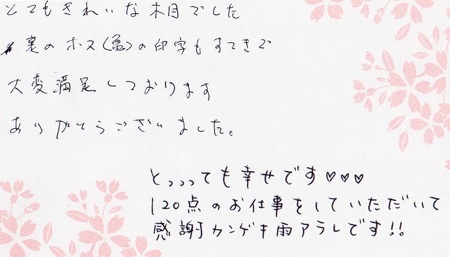 とてもきれいな木目でした
裏のボス(亀)の印字もすてきで
大変満足しております
ありがとうございました。
とっっっても幸せです♡♡♡
120点のお仕事をしていただいて
感謝カンゲキ雨アラレです!!